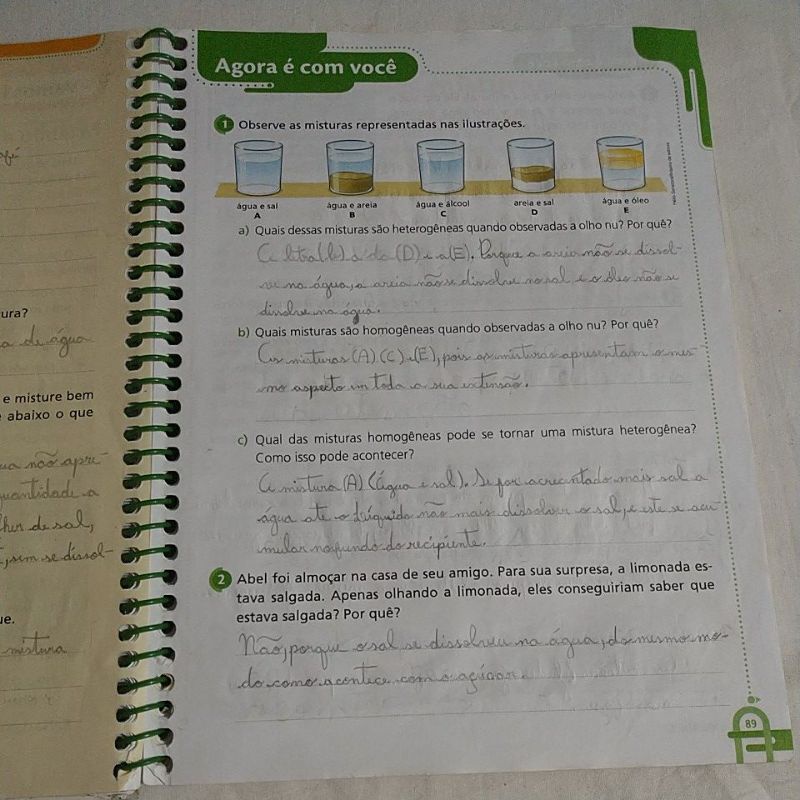 Agora é com você
1 Observe as misturas representadas nas ilustrações.
água e sal
A
água e areia
B
água e álcool
C
areia e sal
D
água e óleo
E
a) Quais dessas misturas são heterogêneas quando observadas a olho nu? Por quê?
(D) e a (E). Porque a areia não se dissol-
ve na água, a areia não se dissolve no sal e o óleo não se
dissolve na água.
b) Quais misturas são homogêneas quando observadas a olho nu? Por quê?
As misturas (A) (C) e (E), pois as misturas apresentam o mes-
mo aspecto em toda a sua extensão.
c) Qual das misturas homogêneas pode se tornar uma mistura heterogênea?
Como isso pode acontecer?
A mistura (A) (água e sal). Se for acrecentado mais sal a
água até o líquido não mais dissolver o sal, e este se acu
mular no fundo do recipiente.
2 Abel foi almoçar na casa de seu amigo. Para sua surpresa, a limonada es-
tava salgada. Apenas olhando a limonada, eles conseguiriam saber que
estava salgada? Por quê?
Não, porque o sal se dissolveu na água, do mesmo mo-
do como acontece com o açúcar.
89
ura?
a de água
e misture bem
abaixo o que
ua não apre-
quantidade a
lher de sal,
, sem se dissol-
ue.
mistura